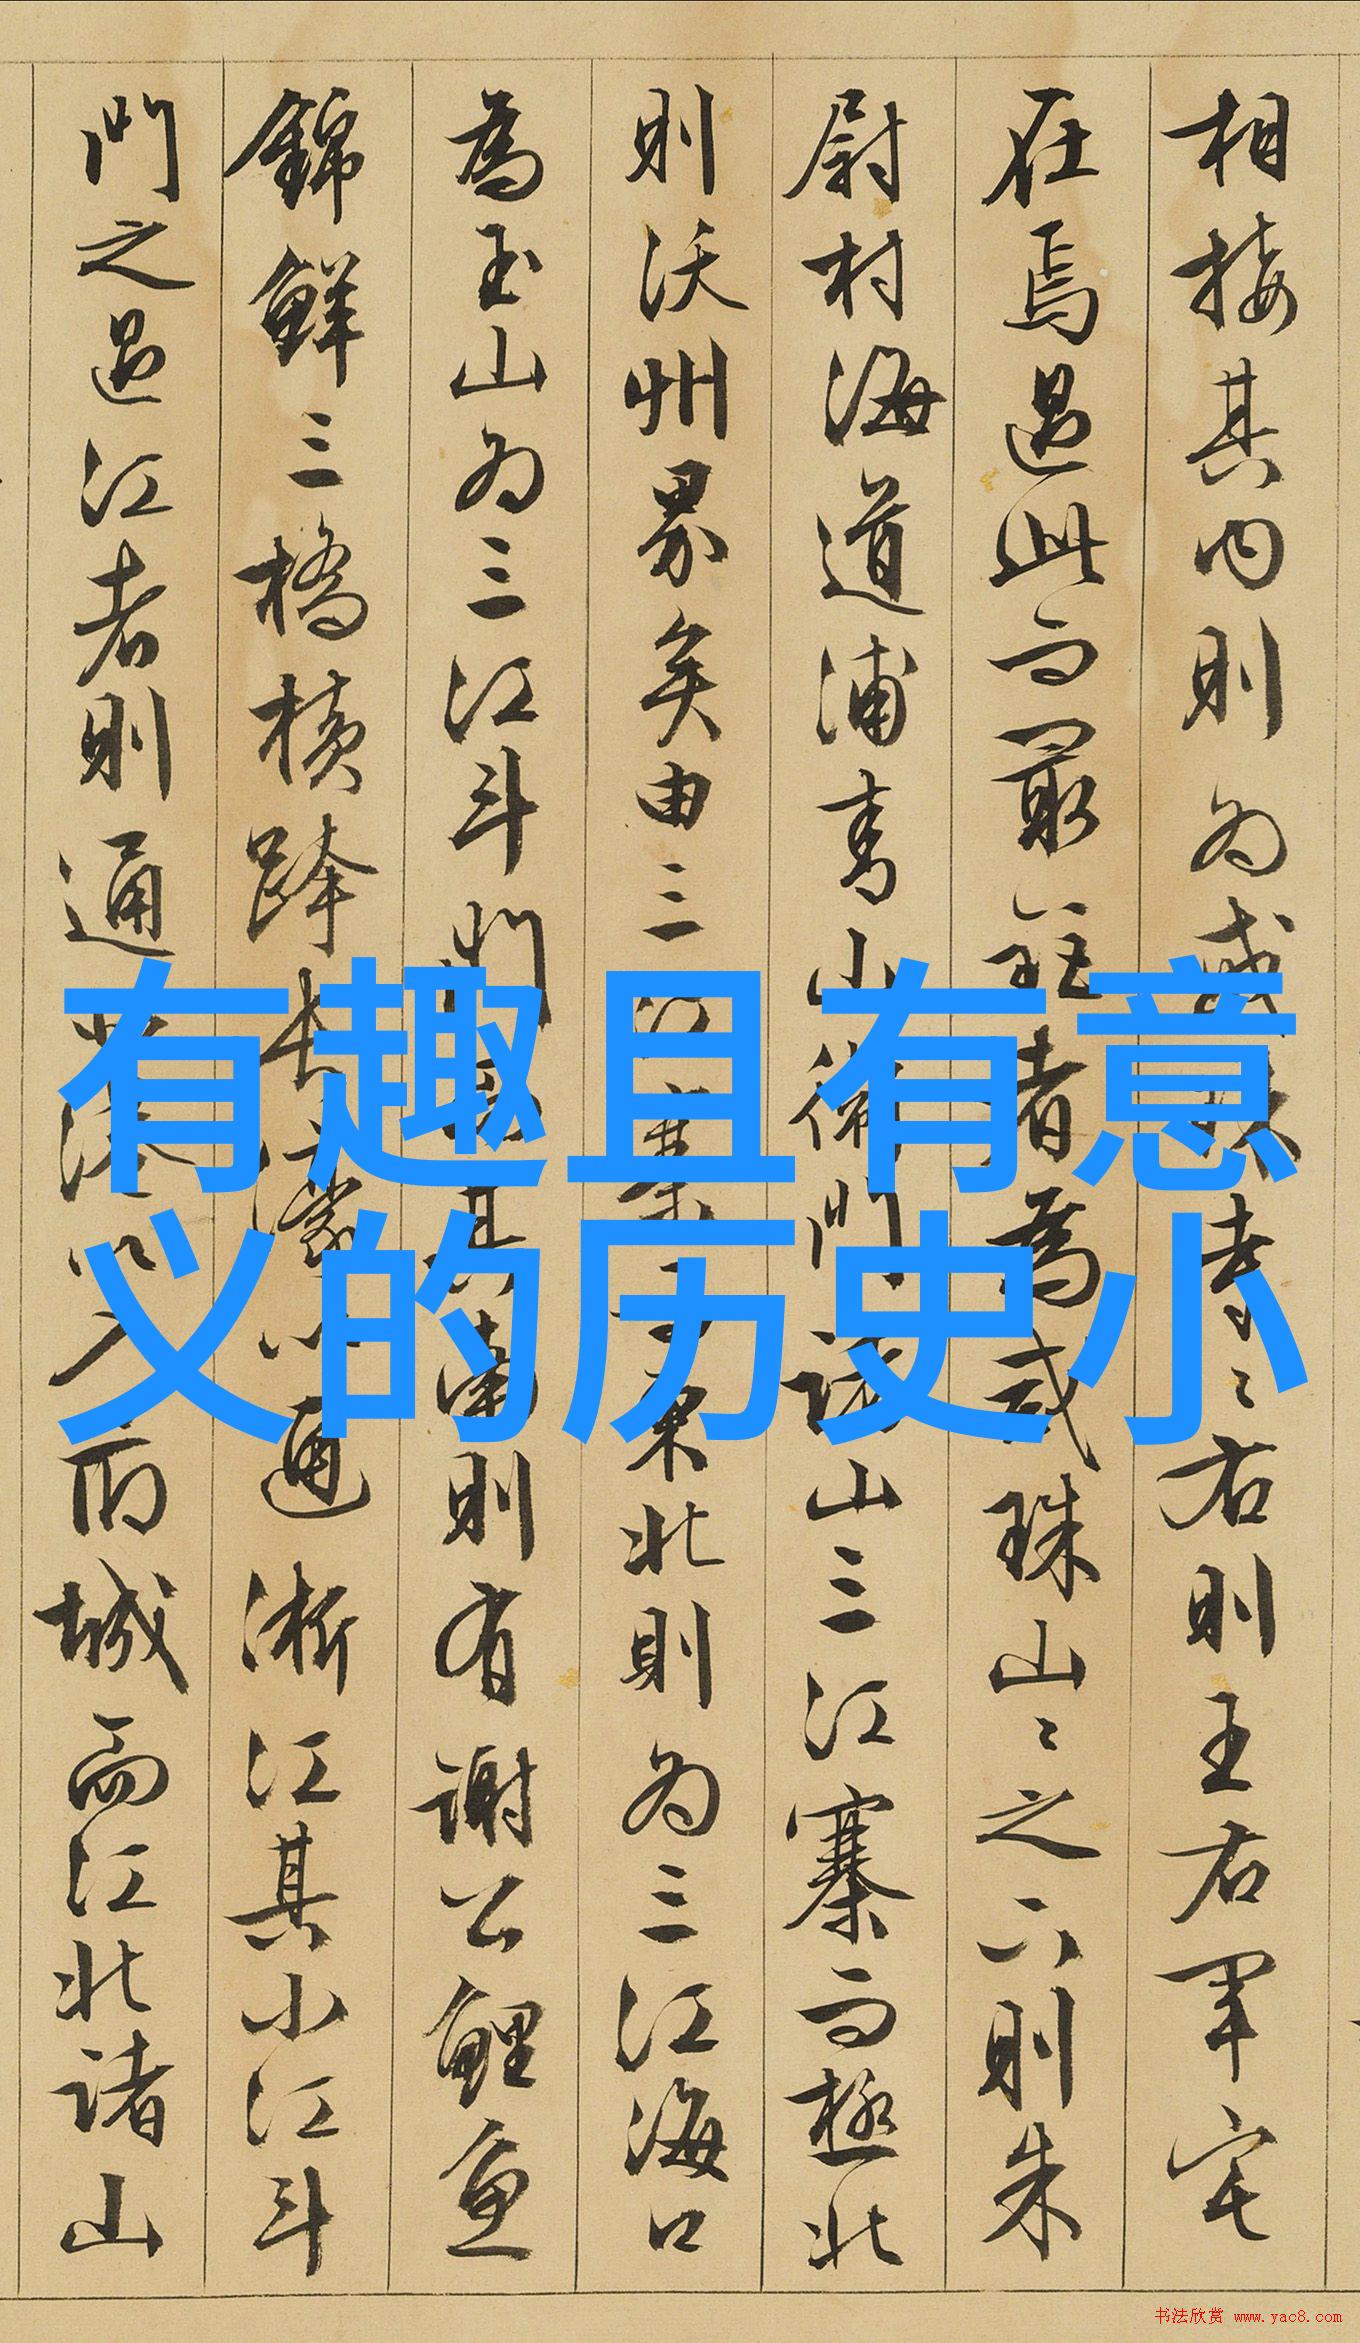 相接其内則為咸珠寺〻右則王右軍宅
在焉過此而最短者為咸珠山〻之下則朱
尉村海道浦青山衛門諸山三江寨而極北
則沃州界矣由三江寨而東北則為三江海口
為玉山為三江斗門其南則有謝公鯉魚
錦鮮三橋橫跨長濠以通浙江其小江斗
門之過江者則通而城而江北諸山
有趣且有意
义的历史小
书法欣赏 www.yac8.com